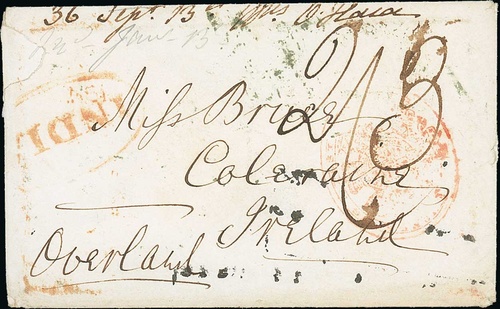 36 Sept. 13th Mrs. O'Hara
2/3
INDIA
Miss Bruce
Coleraine
Ireland
Overland